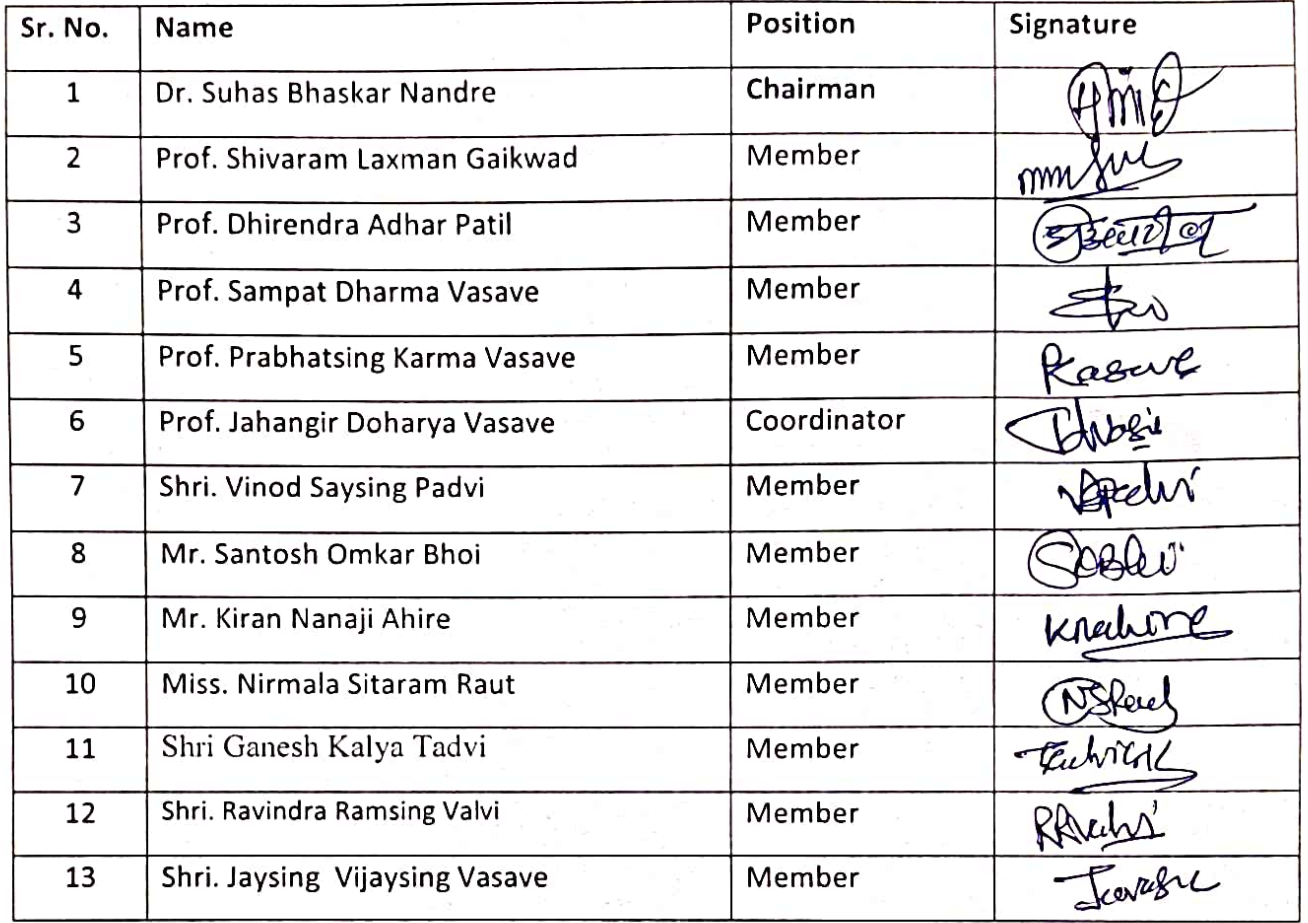 Sr. No. Name Position Signature
1 Dr. Suhas Bhaskar Nandre Chairman
2 Prof. Shivaram Laxman Gaikwad Member
3 Prof. Dhirendra Adhar Patil Member
4 Prof. Sampat Dharma Vasave Member
5 Prof. Prabhatsing Karma Vasave Member
6 Prof. Jahangir Doharya Vasave Coordinator
7 Shri. Vinod Saysing Padvi Member
8 Mr. Santosh Omkar Bhoi Member
9 Mr. Kiran Nanaji Ahire Member
10 Miss. Nirmala Sitaram Raut Member
11 Shri Ganesh Kalya Tadvi Member
12 Shri. Ravindra Ramsing Valvi Member
13 Shri. Jaysing Vijaysing Vasave Member